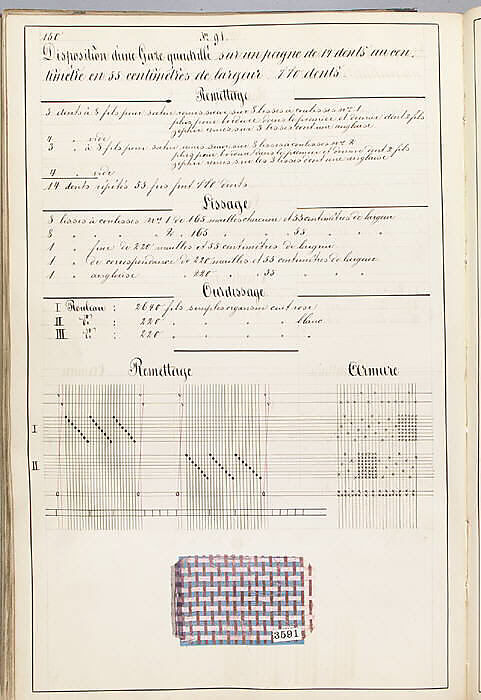 150 No. 91.
Disposition d'une Gaze quadrillé sur un peigne de 14 dents au cen-
timètre en 55 centimètres de largeur. 770 dents.
Remettage
3 dents à 8 fils pour satin remis
plus pour bordure dans le premier et dernier dent 2 fils
remis sur 3 lisses dont une anglaise
4 " vide
3 " à 8 fils pour satin remis sur 8 lisses à coulisses No. 2
plus pour bordure dans le premier et dernier dent 2 fils
remis sur les 3 lisses dont une anglaise
4 " vide
14 dents répétés 55 fois font 770 dents.
Lissage
8 lisses à coulisses No. 1 de 165 mailles chacune et 55 centimètres de largeur
8 " " " 2 " 165 " " 55 " "
1 " fixe de 220 mailles et 55 centimètres de largeur
1 " de correspondance de 220 mailles et 55 centimètres de largeur
1 " anglaise " 220 " " 55 " " "
Ourdissage
I Rouleau : 2640 fils simples organsin cuit rose
II " : 220 " " " " blanc
III " : 220 " " " " "
Remettage Armure
I
II
3591